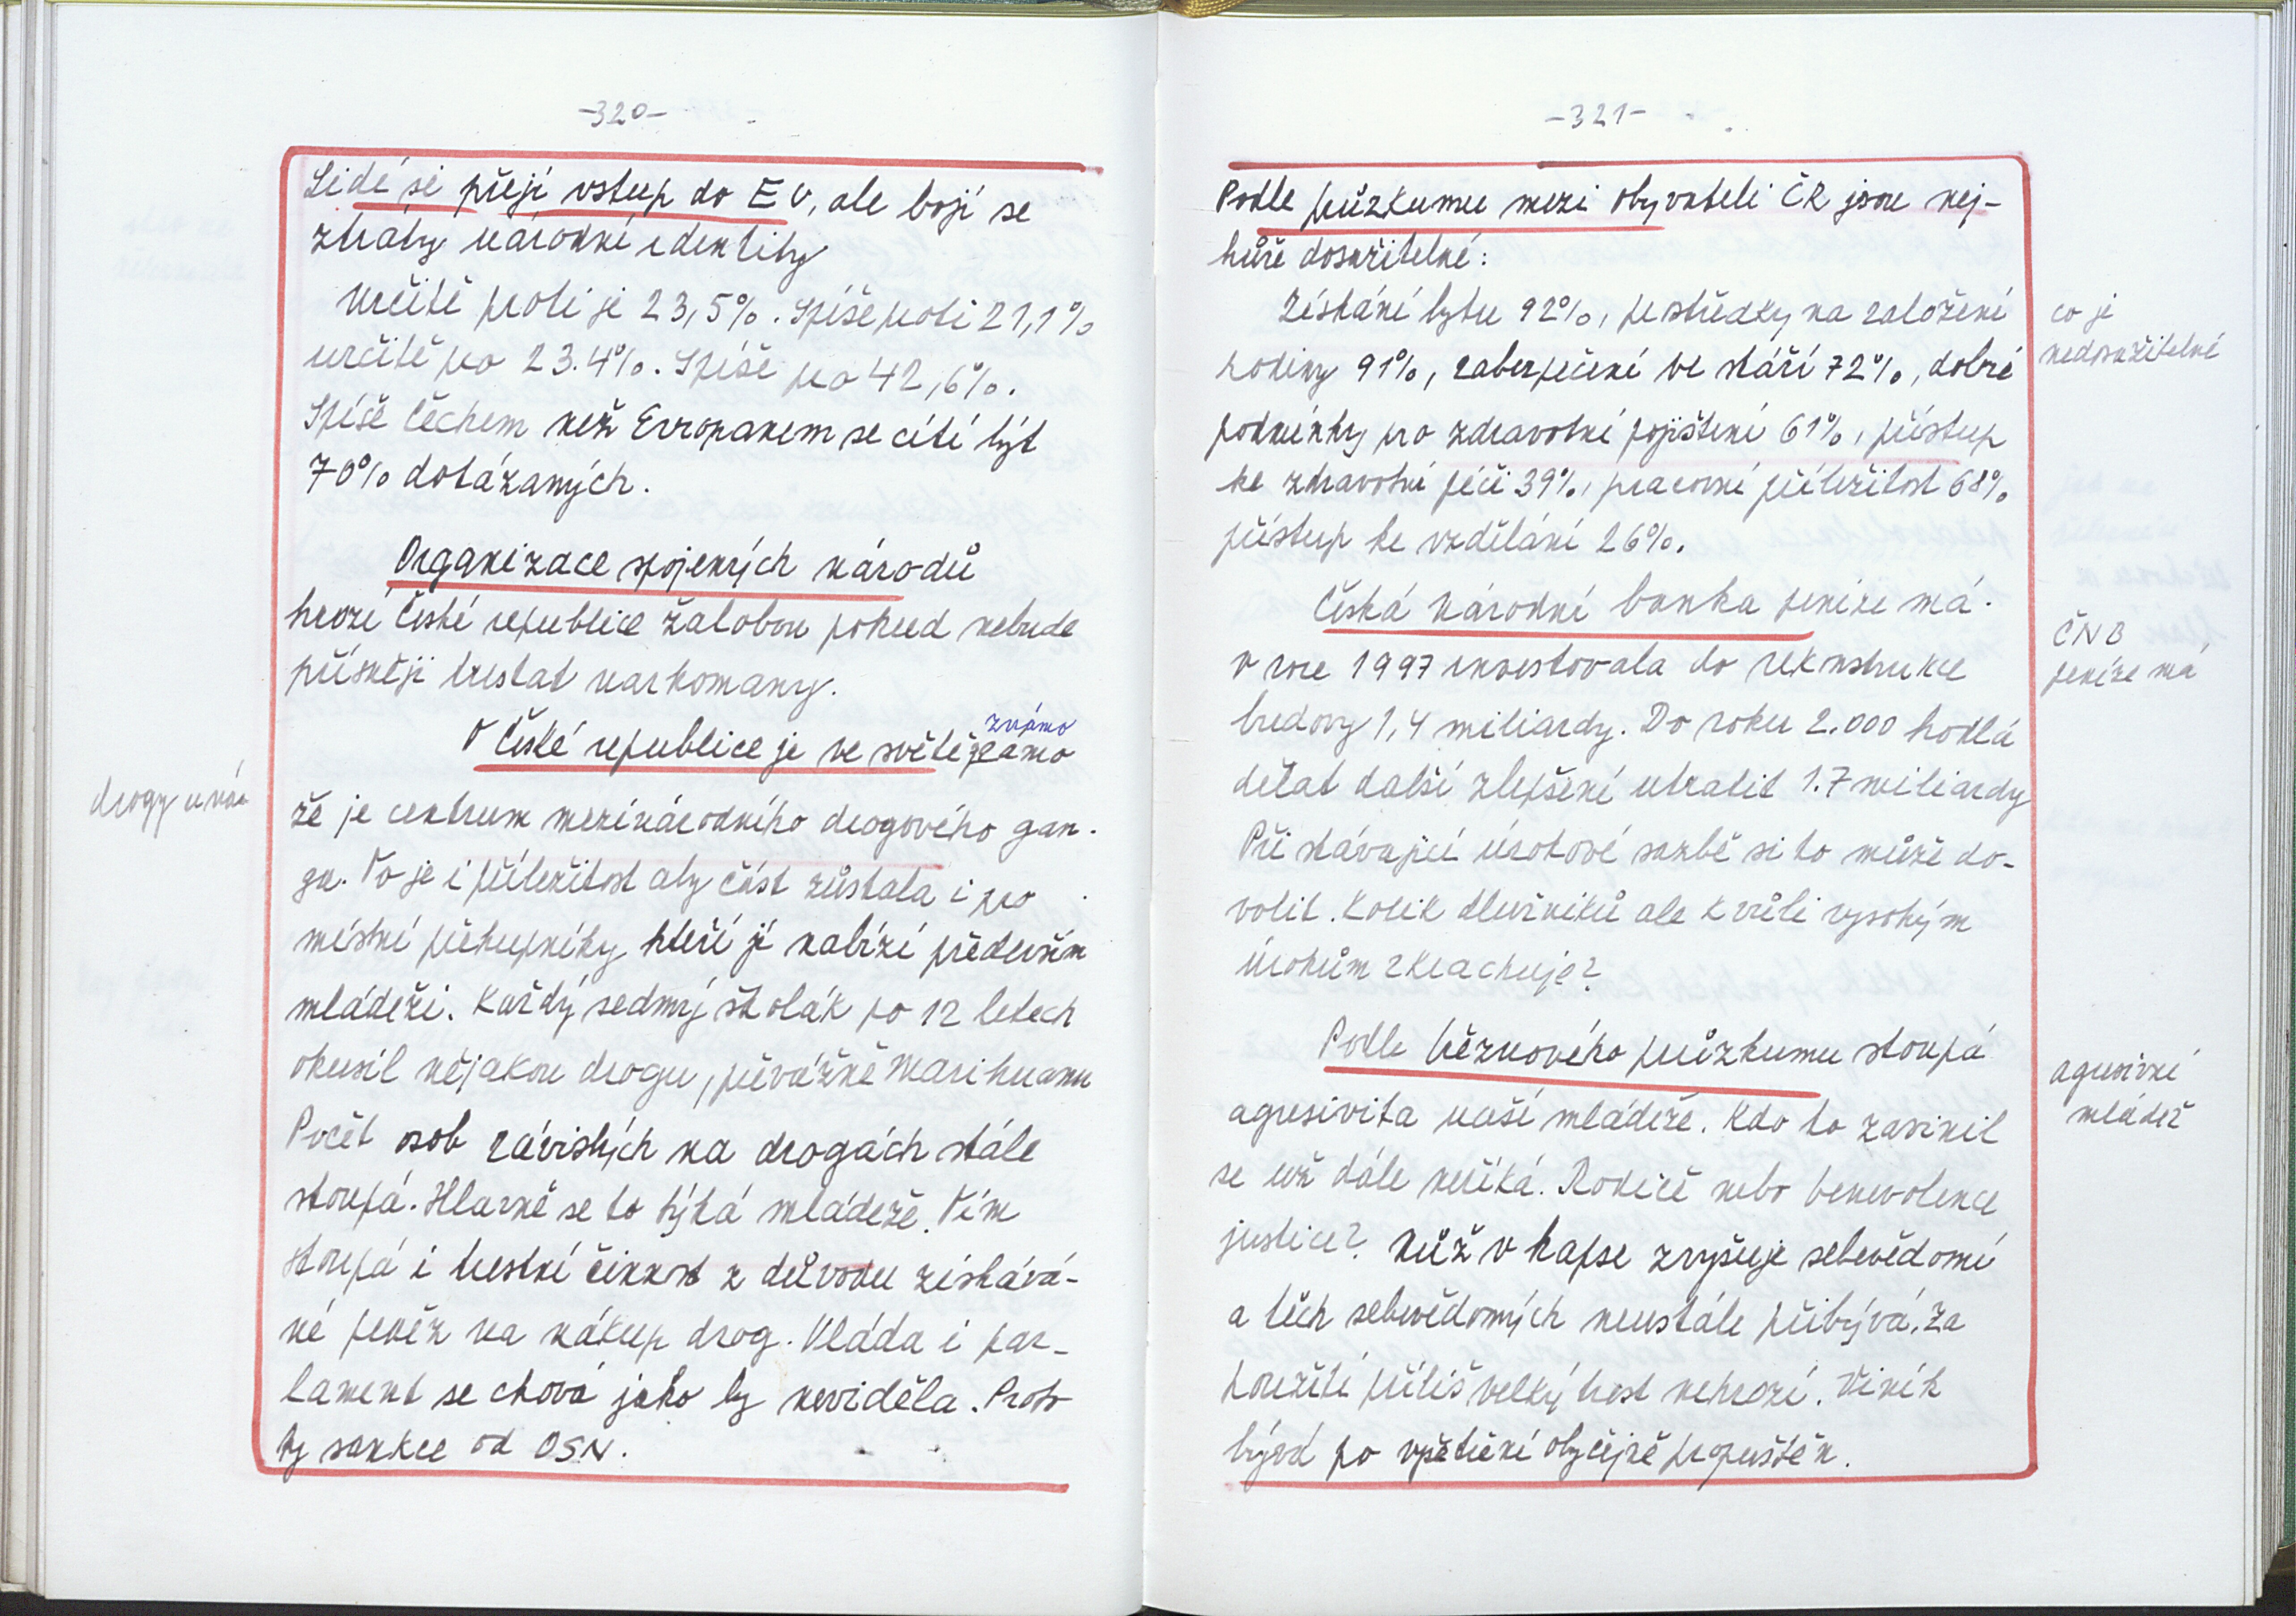 -320-
Lidé si přejí vstup do EU, ale bojí se
ztráty národní identity
Určitě proti je 23,5%. Spíše proti 21,1%
určitě pro 23.4%. Spíše pro 42,6%.
Spíše Čechem než Evropanem se cítí být
70% dotázaných.
Organizace spojených národů
hrozí České republice žalobou pokud nebude
přísněji trestat narkomany.
známo
O České republice je ve světě
drogy u nás
že je centrum mezinárodního drogového gan-
gu. To je i příležitost aby část zůstala i pro
místní překupníky kteří jí nabízí především
mládeži. Každý sedmý školák po 12 letech
okusil nějakou drogu, převážně Marihuanu
Počet osob závislých na drogách stále
stoupá. Hlavně se to týká mládeže. Tím
stoupá i trestní činnost z důvodu získává-
ní peněz na nákup drog. Vláda i par-
lament se chová jako by neviděla. Proto
ty sankce od OSN.
-321-
Podle průzkumu mezi obyvateli ČR jsou nej-
hůře dosažitelné:
Získání bytu 92%, prostředky na založení
rodiny 91%, zabezpečení ve stáří 72%, dobré
podmínky pro zdravotní pojištění 61%, přístup
ke zdravotní péči 39%, pracovní příležitost 68%
přístup ke vzdělání 26%.
co je
nedosažitelné
Česká národní banka peníze má.
v roce 1997 investovala do rekonstrukce
budovy 1,4 miliardy. Do roku 2.000 hodlá
dělat další zlepšení utratit 1.7 miliardy
Při stávající úrokové sazbě si to může do-
volit. Kolik dlužníků ale kvůli vysokým
úrokům zkrachuje?
ČNB
peníze má
Podle březnového průzkumu stoupá
agresivita naší mládeže. Kdo to zavinil
se už dále neříká. Rodiče nebo benevolence
justice? Nůž v kapse zvyšuje sebevědomí
a těch sebevědomých neustále přibývá. Za
použití příliš velký trest nehrozí. Viník
bývá po vyšetření obyčejně propuštěn.
agresivní
mládež